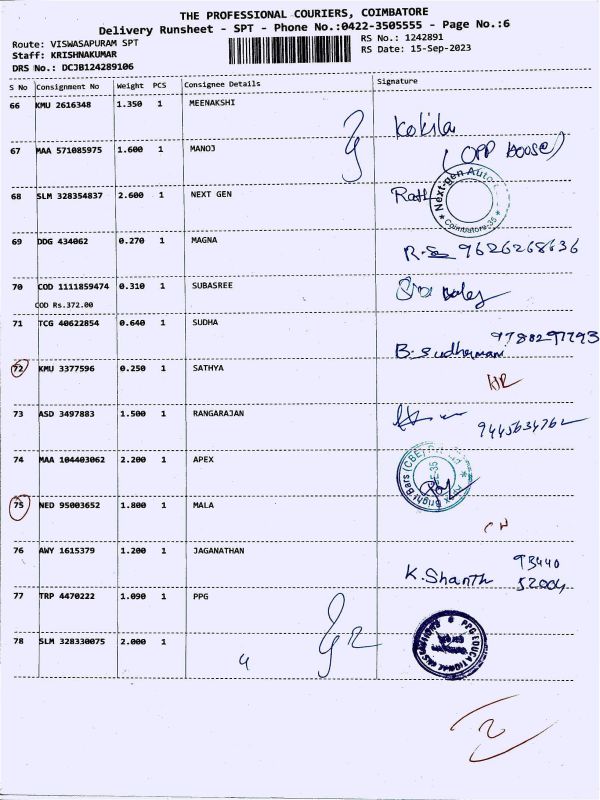 THE PROFESSIONAL COURIERS, COIMBATORE
Delivery Runsheet - SPT - Phone No.:0422-3505555 - Page No.:6
Route: VISWASAPURAM SPT
RS No.: 1242891
Staff: KRISHNAKUMAR
RS Date: 15-Sep-2023
DRS No.: DCJB124289106
S No Consignment No Weight PCS Consignee Details Signature
66 KMU 2616348 1.350 1 MEENAKSHI
Kokila
67 MAA 571085975 1.600 1 MANOJ
(OPP House)
68 SLM 328354837 2.600 1 NEXT GEN
Next-gen Auto
Coimbatore-35
69 DDG 434062 0.270 1 MAGNA
9626268636
70 COD 1111859474 0.310 1 SUBASREE
COD Rs.372.00
71 TCG 40622854 0.640 1 SUDHA
9788297793
B. Sudhamani
72 KMU 3377596 0.250 1 SATHYA
73 ASD 3497883 1.500 1 RANGARAJAN
9445634762
74 MAA 104403062 2.200 1 APEX
Bright Bars (CBE)
75 NED 95003652 1.800 1 MALA
76 AWY 1615379 1.200 1 JAGANATHAN
K. Shanth
93440
52004
77 TRP 4470222 1.090 1 PPG
78 SLM 328330075 2.000 1
PPG EDUCATIONAL INSTITUTIONS